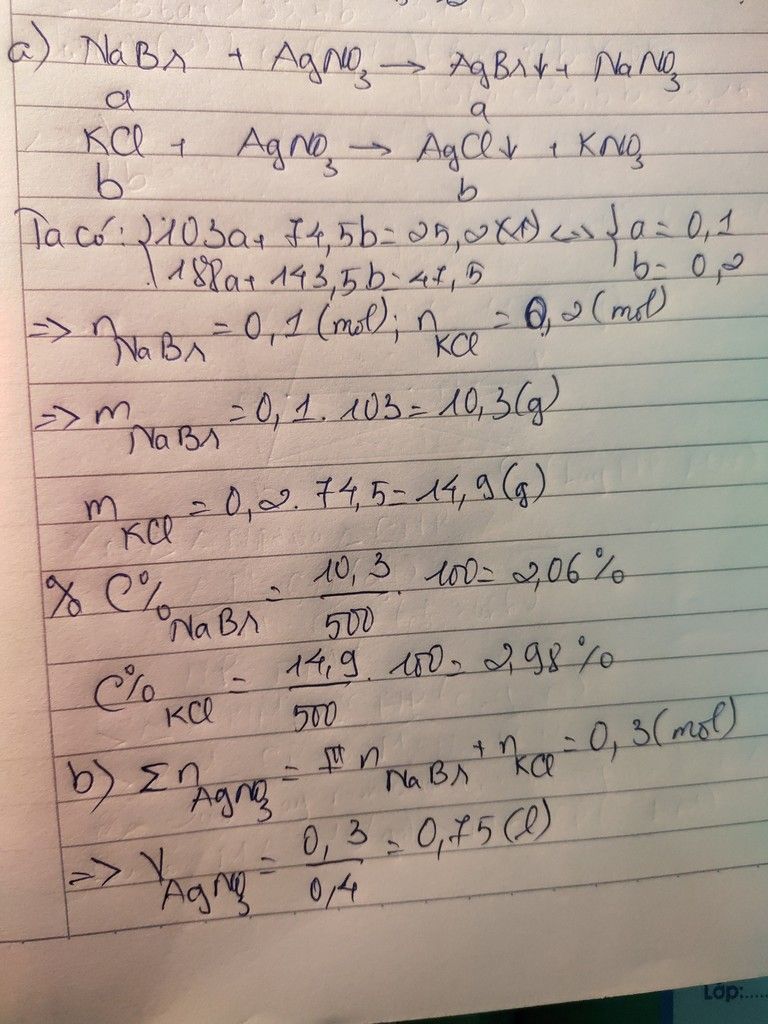 a) NaBr + AgNO3 → AgBr↓ + NaNO3
a a
KCl + AgNO3 → AgCl↓ + KNO3
b b
Ta có: { 103a + 74,5b = 25,2 (1) <=> { a = 0,1
188a + 143,5b = 47,5 b = 0,2
=> n NaBr = 0,1 (mol); n KCl = 0,2 (mol)
=> m NaBr = 0,1 . 103 = 10,3 (g)
m KCl = 0,2 . 74,5 = 14,9 (g)
% C% NaBr = 10,3/500 . 100 = 2,06 %
C% KCl = 14,9/500 . 100 = 2,98 %
b) Σ n AgNO3 = n NaBr + n KCl = 0,3 (mol)
=> V AgNO3 = 0,3/0,4 = 0,75 (l)
Lớp:.....